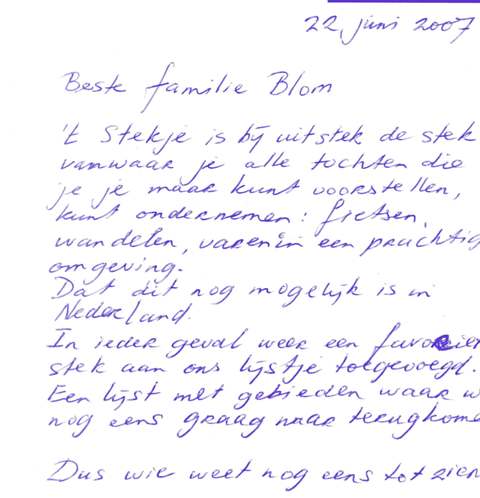 22, juni 2007
Beste familie Blom
't Stekje is bij uitstek de stek
vanwaar je alle tochten die
je je maar kunt voorstellen,
kunt ondernemen: fietsen,
wandelen, varen in een prachtig
omgeving.
Dat dit nog mogelijk is in
Nederland.
In ieder geval weer een favorier
stek aan ons lijstje toegevoegd.
Een lijst met gebieden waar w
nog eens graag naar terugkome
Dus wie weet nog eens tot zien